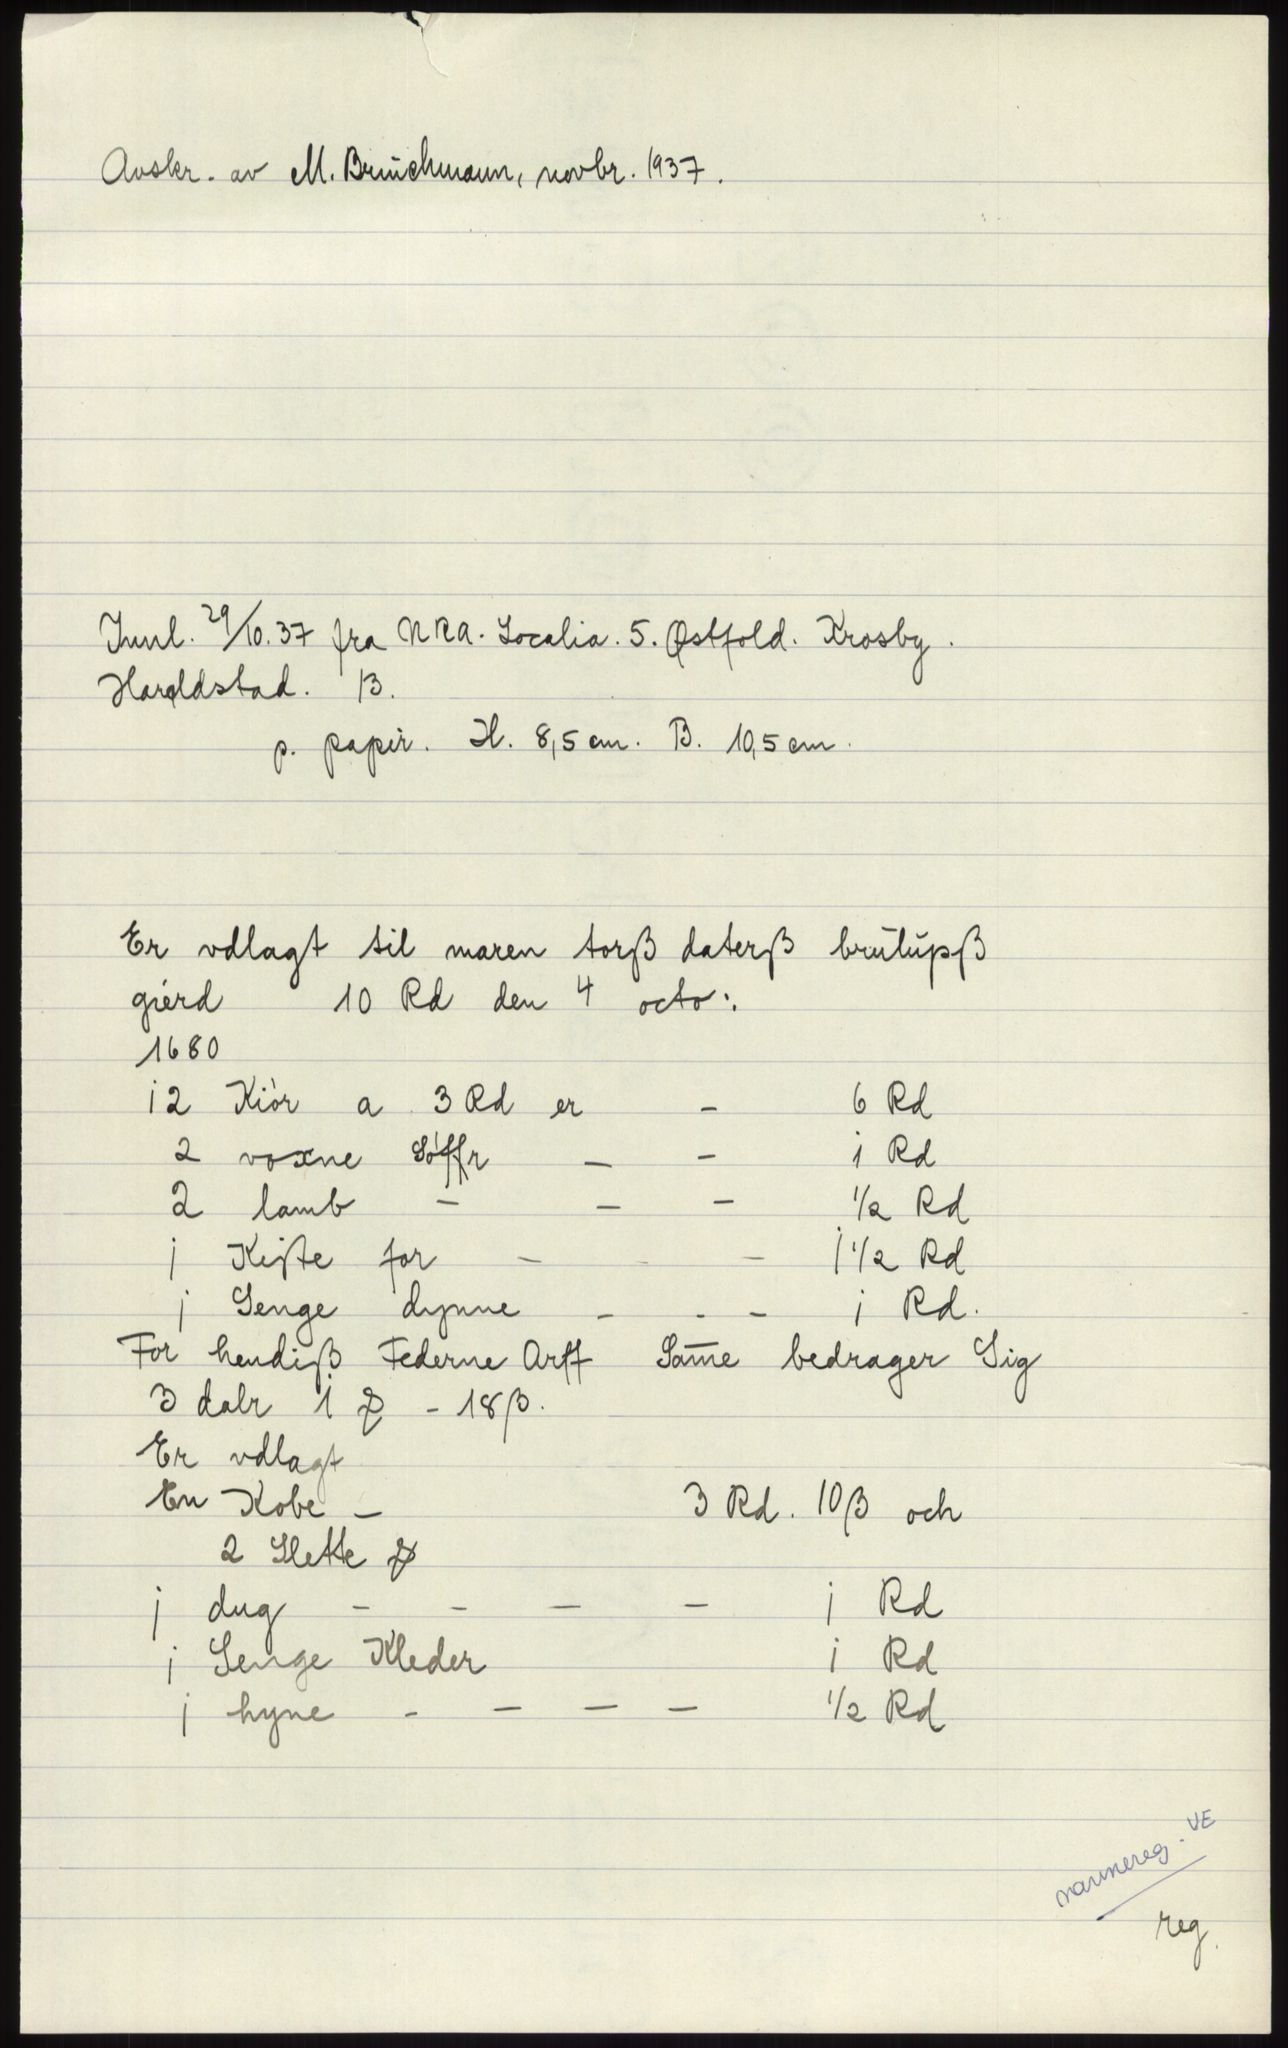 Avskr. av M. Brüchmann, novbr. 1937.
Innl. 29/10.37 fra NRA. Localia. 5. Østfold. Krosby.
Haraldstad. 13.
p. papir. H. 8,5 cm. B. 10,5 cm.
Er vdlagt til maren torß daterß brülüpß
giérd 10 Rd den 4 octo:.
1680
i2 Kiór a 3 Rd er - 6 Rd
2 voxne Sóffr - - i Rd
2 lamb - - - 1/2 Rd
j Kiste for - - j 1/2 Rd
j Senge dynne - - - i Rd.
For hendiß Federne Arff Same bedrager Sig
3 dalr i - 18 ß.
Er vdlagt
En Kobe - 3 Rd. 10 ß och
2 Slette
j dug - - - - j Rd
j Senge Kleder i Rd
j hyne - - - - 1/2 Rd
navnereg. VE
reg.